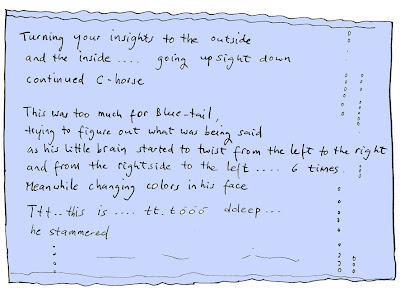 Turning your insights to the outside
and the inside .... going upsight down
continued C-horse
This was too much for Blue-tail,
trying to figure out what was being said
as his little brain started to twist from the left to the right
and from the rightside to the left .... 6 times.
Meanwhile changing colors in his face
Ttt.. this is .... tt. tóóó doleep...
he stammered